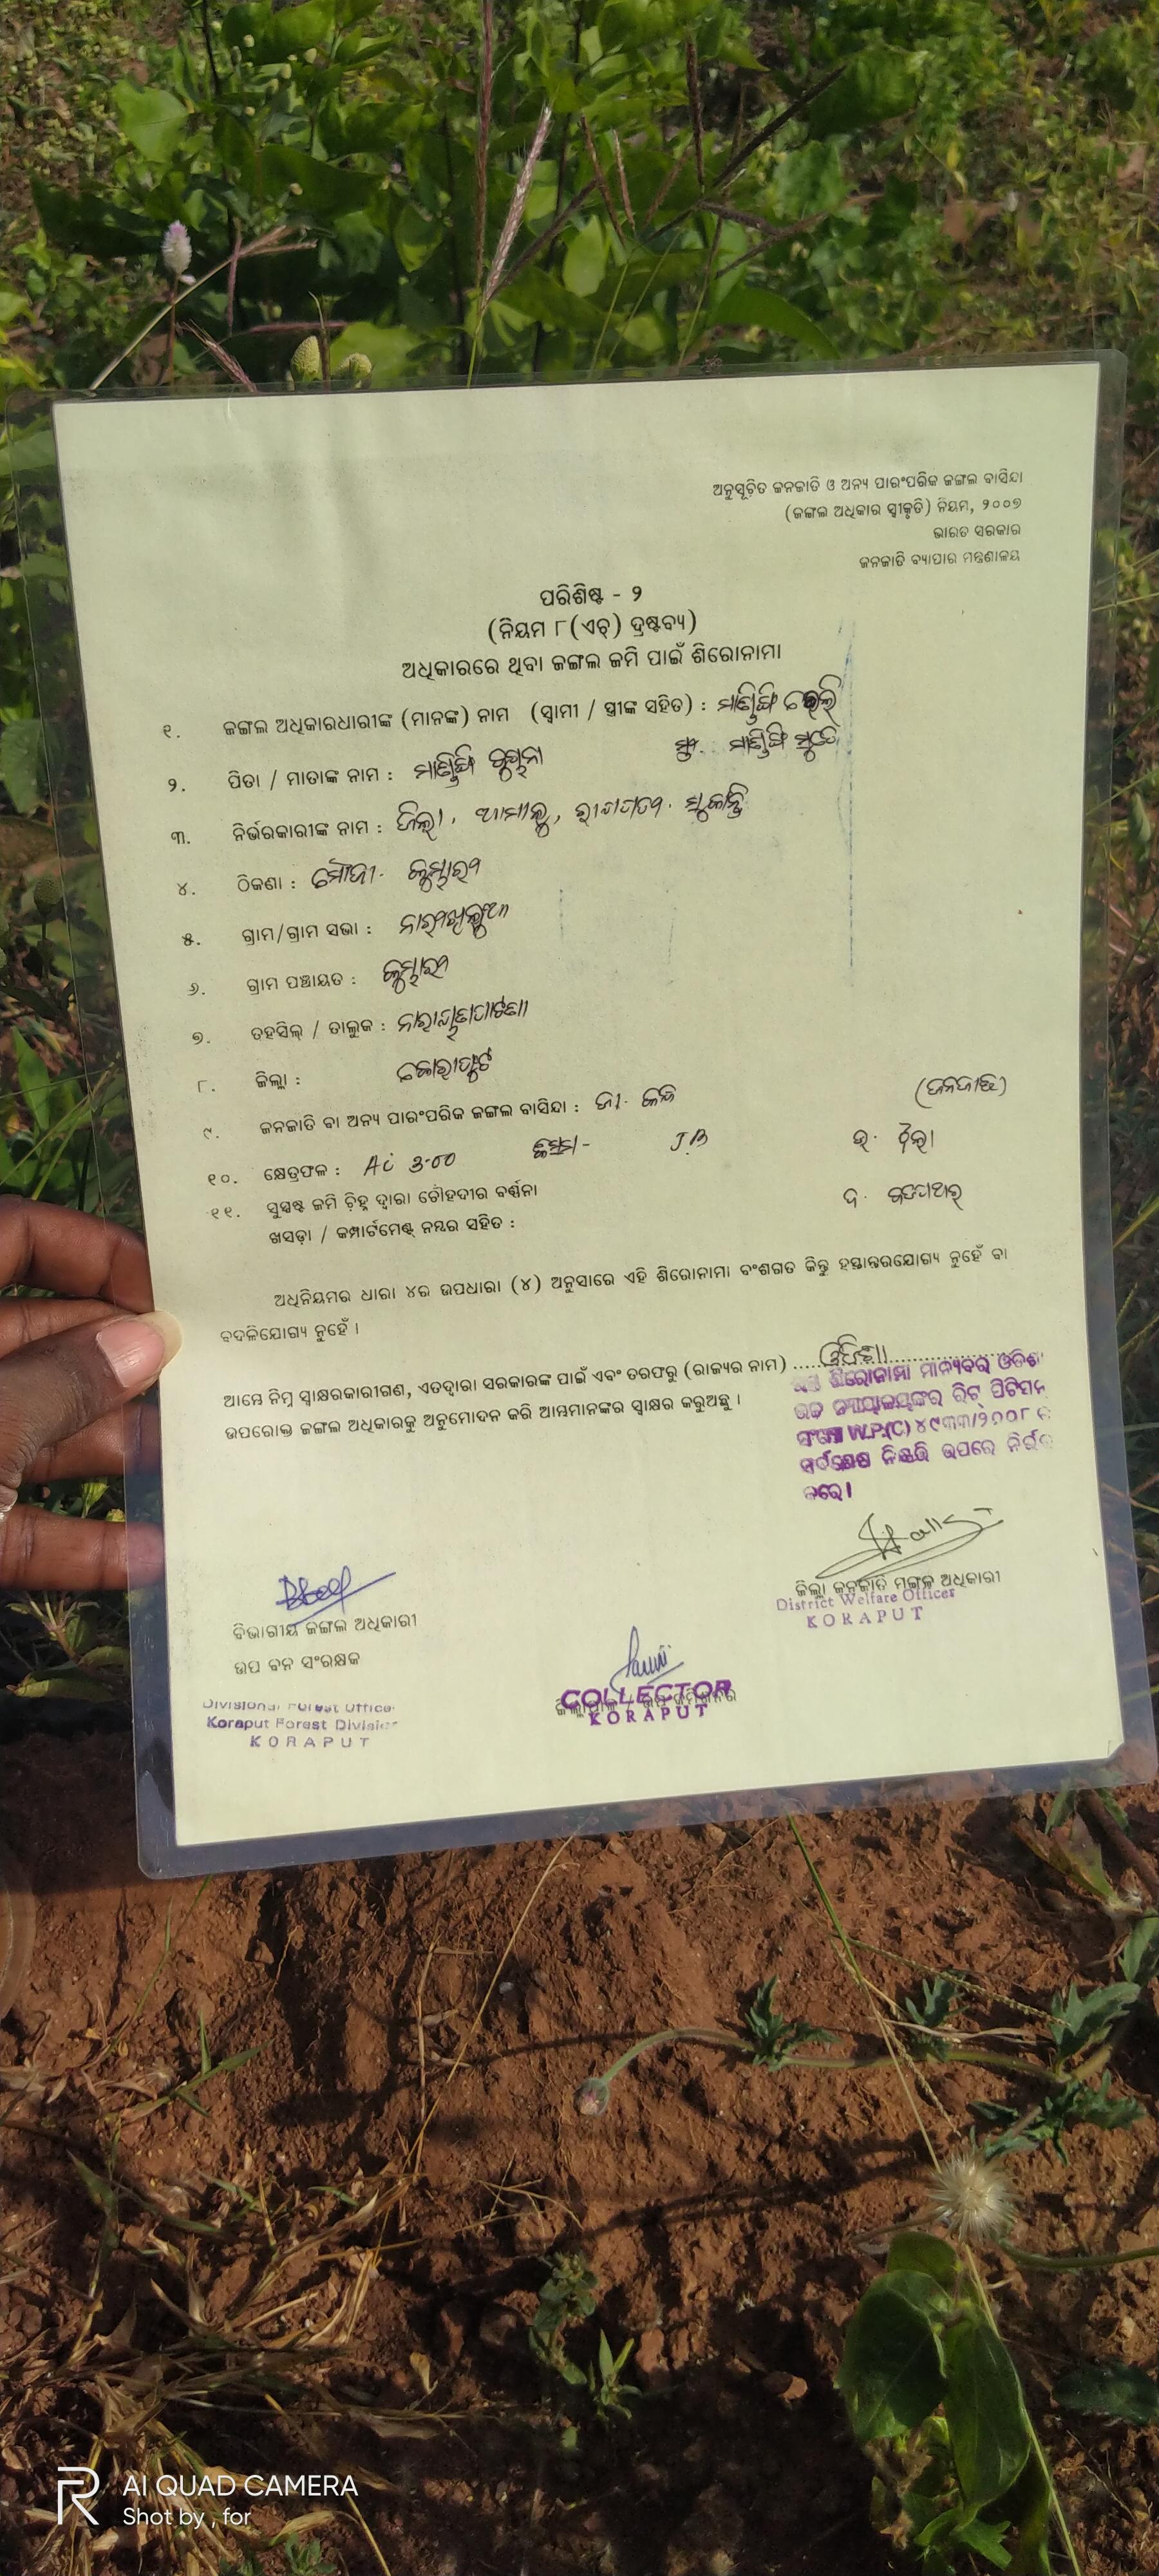 ଅନୁସୂଚିତ ଜନଜାତି ଓ ଅନ୍ୟ ପାରଂପରିକ ଜଙ୍ଗଲ ବାସିନ୍ଦା
(ଜଙ୍ଗଲ ଅଧିକାର ସ୍ୱୀକୃତି) ନିୟମ, ୨୦୦୭
ଭାରତ ସରକାର
ଜନଜାତି ବ୍ୟାପାର ମନ୍ତ୍ରଣାଳୟ
ପରିଶିଷ୍ଟ - ୨
(ନିୟମ ୮(ଏଚ୍) ଦ୍ରଷ୍ଟବ୍ୟ)
ଅଧିକାରରେ ଥିବା ଜଙ୍ଗଲ ଜମି ପାଇଁ ଶିରୋନାମା
୧. ଜଙ୍ଗଲ ଅଧିକାରଧାରୀଙ୍କ (ମାନଙ୍କ) ନାମ (ସ୍ୱାମୀ / ସ୍ତ୍ରୀଙ୍କ ସହିତ) : ମାଣ୍ଡିଙ୍ଗି
୨. ପିତା / ମାତାଙ୍କ ନାମ : ମାଣ୍ଡିଙ୍ଗି ମାଣ୍ଡିଙ୍ଗି
୩. ନିର୍ଭରକାରୀଙ୍କ ନାମ :
୪. ଠିକଣା : ମୌଜା. କୁମ୍ଭାରୀ
୫. ଗ୍ରାମ/ଗ୍ରାମ ସଭା :
୬. ଗ୍ରାମ ପଞ୍ଚାୟତ : କୁମ୍ଭାରୀ
୭. ତହସିଲ୍ / ତାଲୁକ : ନାରାୟଣପାଟଣା
୮. ଜିଲ୍ଲା : କୋରାପୁଟ
୯. ଜନଜାତି ବା ଅନ୍ୟ ପାରଂପରିକ ଜଙ୍ଗଲ ବାସିନ୍ଦା : (ଜନଜାତି)
୧୦. କ୍ଷେତ୍ରଫଳ : Ac 3-00 J.B ଉ.
୧୧. ସୁସ୍ପଷ୍ଟ ଜମି ଚିହ୍ନ ଦ୍ୱାରା ଚୌହଦୀର ବର୍ଣ୍ଣନା ଦ.
ଖସଡ଼ା / କମ୍ପାର୍ଟମେଣ୍ଟ୍ ନମ୍ବର ସହିତ :
ଅଧିନିୟମର ଧାରା ୪ର ଉପଧାରା (୪) ଅନୁସାରେ ଏହି ଶିରୋନାମା ବଂଶଗତ କିନ୍ତୁ ହସ୍ତାନ୍ତରଯୋଗ୍ୟ ନୁହେଁ ବା
ବଦଳିଯୋଗ୍ୟ ନୁହେଁ ।
ଆମ୍ଭେ ନିମ୍ନ ସ୍ୱାକ୍ଷରକାରୀଗଣ, ଏତଦ୍ୱାରା ସରକାରଙ୍କ ପାଇଁ ଏବଂ ତରଫରୁ (ରାଜ୍ୟର ନାମ) ......ଓଡିଶା..................
ଉପରୋକ୍ତ ଜଙ୍ଗଲ ଅଧିକାରକୁ ଅନୁମୋଦନ କରି ଆମ୍ଭମାନଙ୍କର ସ୍ୱାକ୍ଷର କରୁଅଛୁ ।
ଶିରୋନାମା ମାନ୍ୟବର ଓଡିଶା
ଉଚ୍ଚ ନ୍ୟାୟାଳୟଙ୍କର ରିଟ୍ ପିଟିସନ
ସଂଖ୍ୟା W.P.(C) ୪୯୩୩/୨୦୦୮ ର
ସର୍ବଶେଷ ନିଷ୍ପତ୍ତି ଉପରେ ନିର୍ଭର
କରେ।
ଜିଲ୍ଲା ଜନଜାତି ମଙ୍ଗଳ ଅଧିକାରୀ
District Welfare Officer
KORAPUT
ବିଭାଗୀୟ ଜଙ୍ଗଲ ଅଧିକାରୀ
ଉପ ବନ ସଂରକ୍ଷକ
Divisional Forest Officer
Koraput Forest Division
KORAPUT
COLLECTOR
KORAPUT
AI QUAD CAMERA
Shot by , for